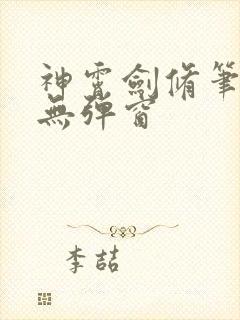 神霄劍脩筆
無彈窗
李喆